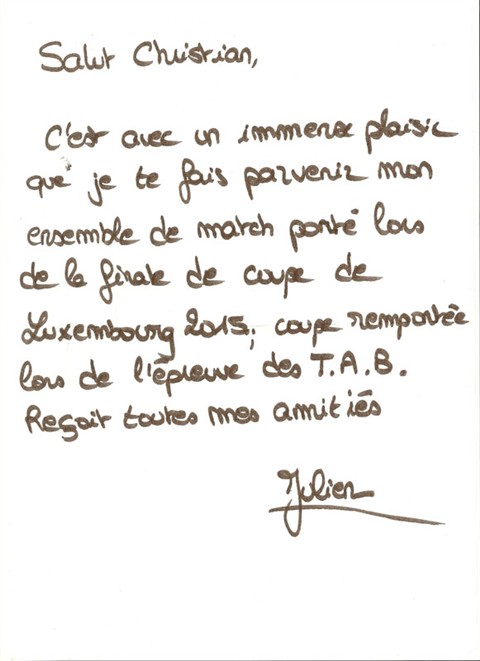 Salut Christian,
C'est avec un immense plaisir
que je te fais parvenir mon
ensemble de match porté lors
de la finale de coupe de
Luxembourg 2015, coupe remportée
lors de l'épreuve des T.A.B.
Reçoit toutes mes amitiés
Julien